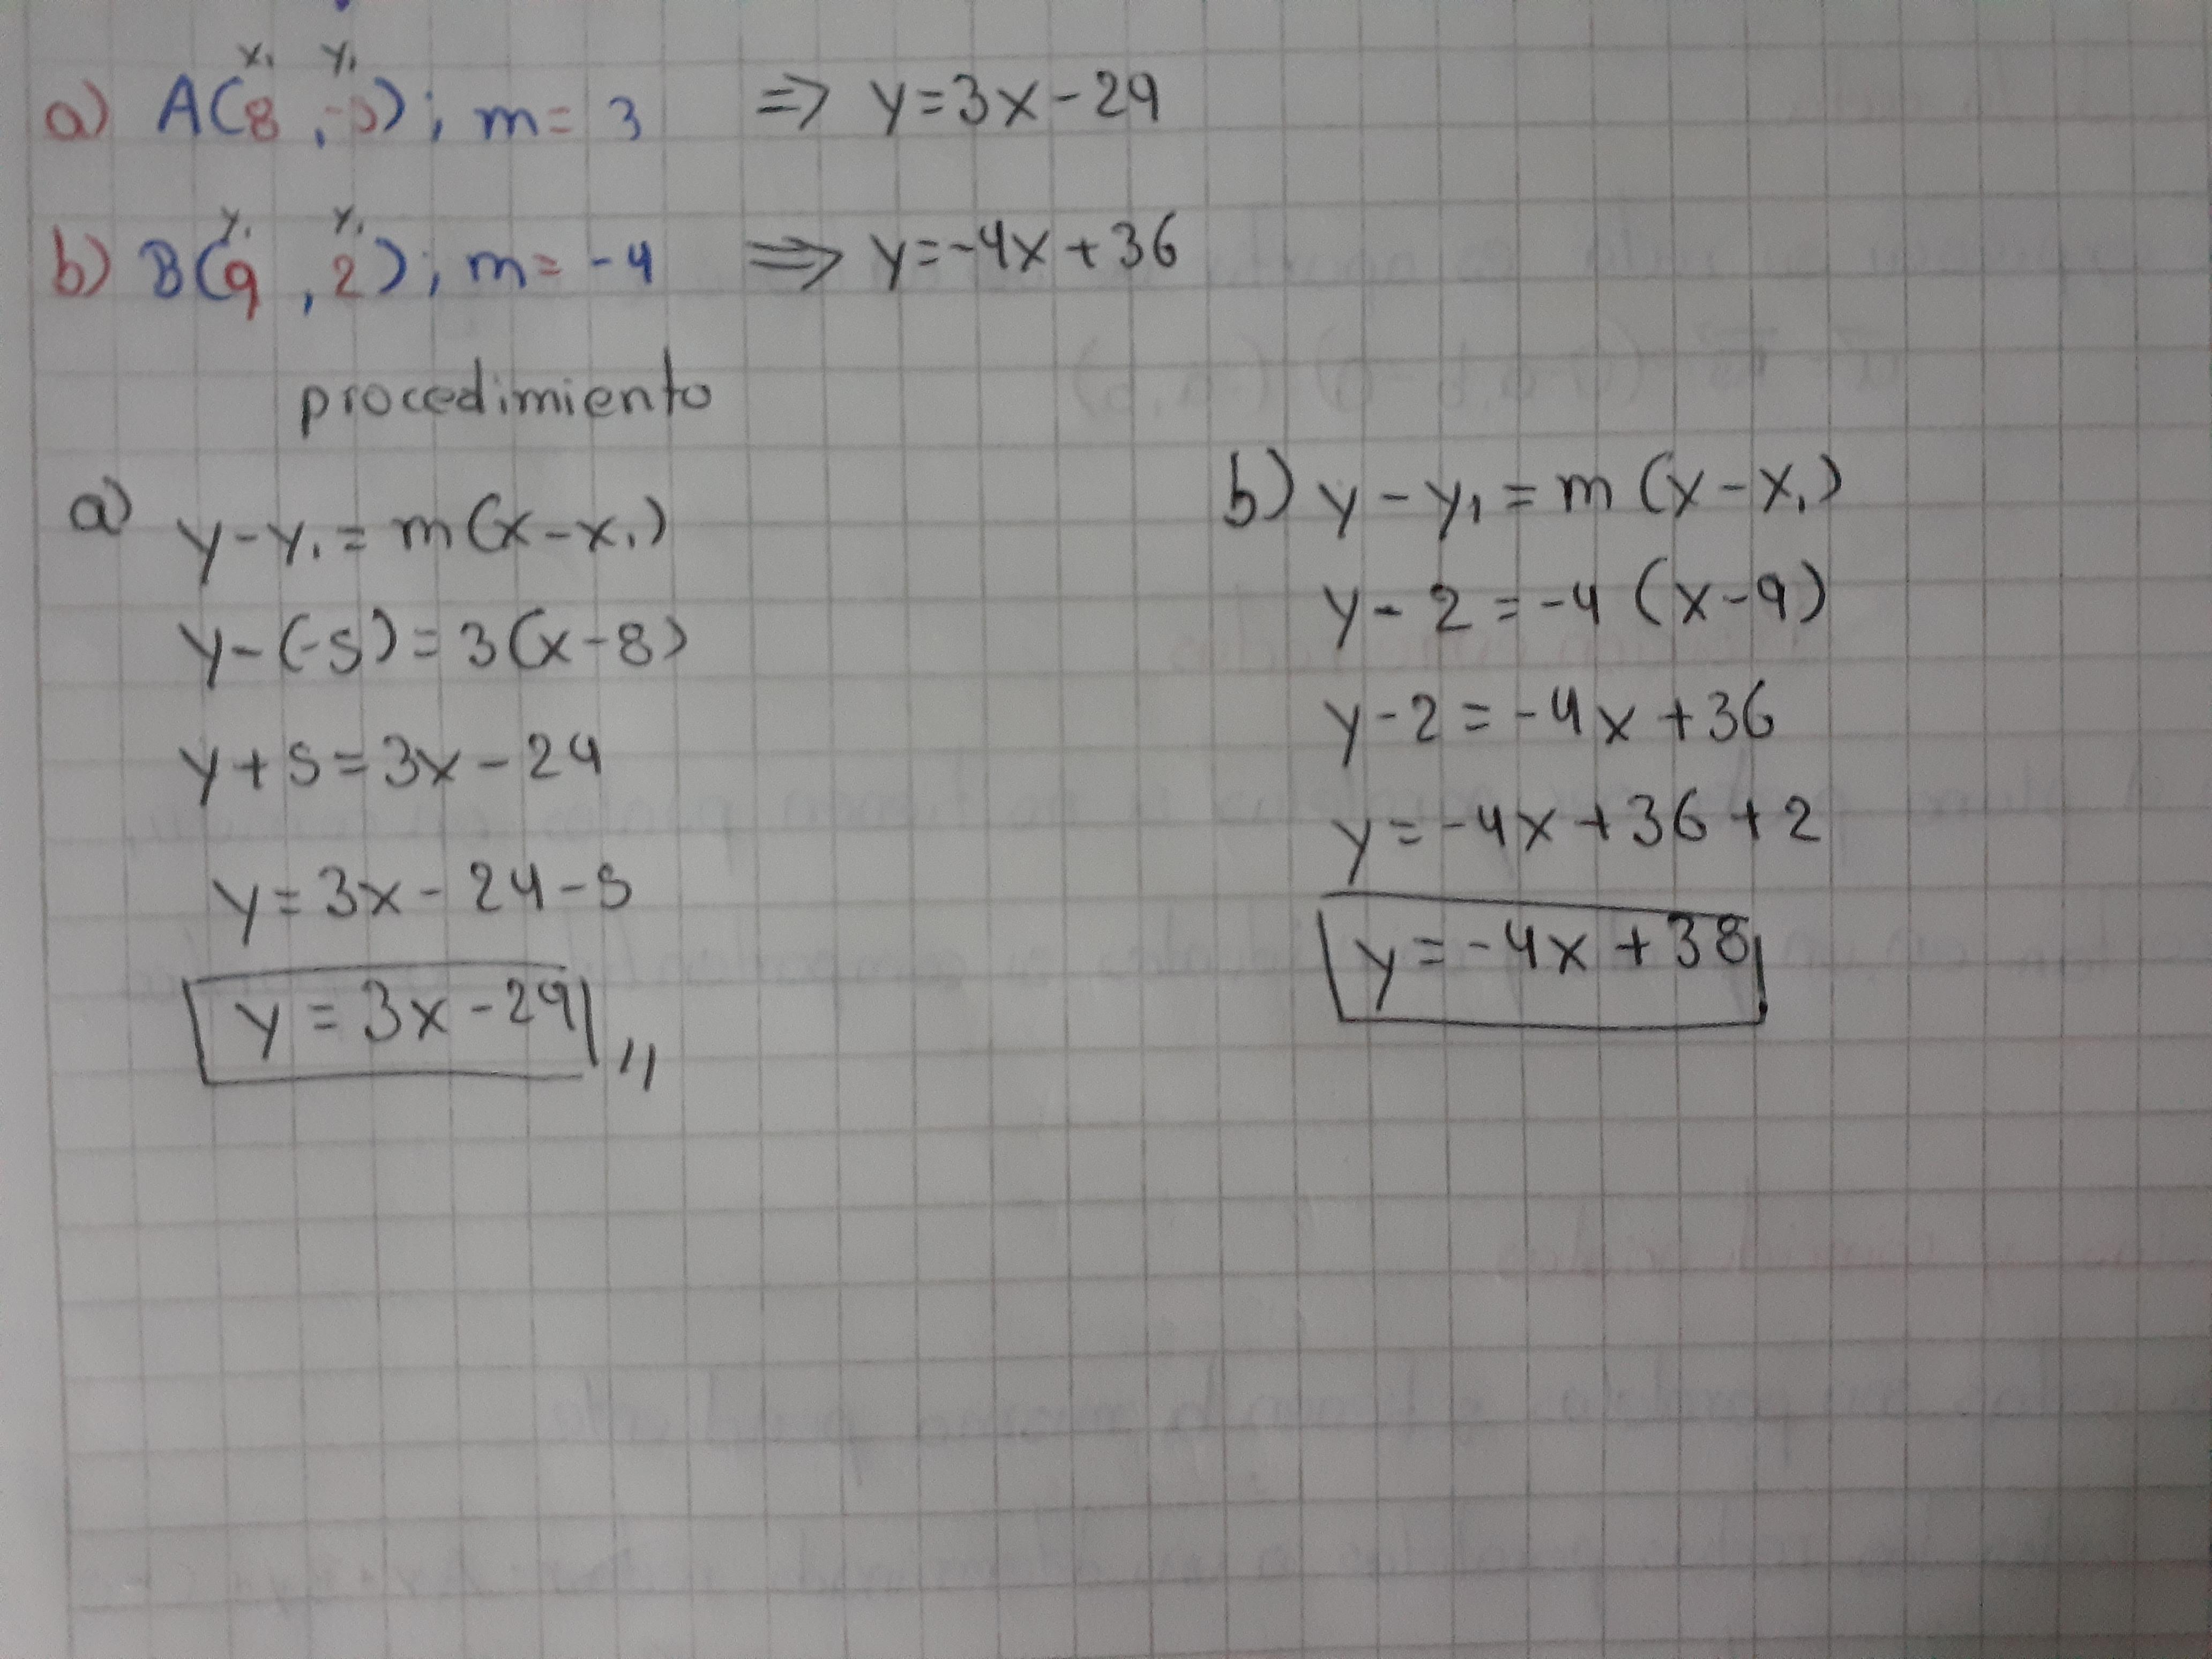 x₁ y₁
a) A(8 , -5); m= 3 => y=3x-29
y₁ y₁
b) B(9 , 2); m= -4 => y=-4x+36
procedimiento
a) y-y₁ = m(x-x₁)
y-(-5)=3(x-8)
y+5=3x-24
y=3x-24-5
y=3x-29
b) y-y₁=m(x-x₁)
y-2=-4(x-9)
y-2=-4x+36
y=-4x+36+2
y=-4x+38